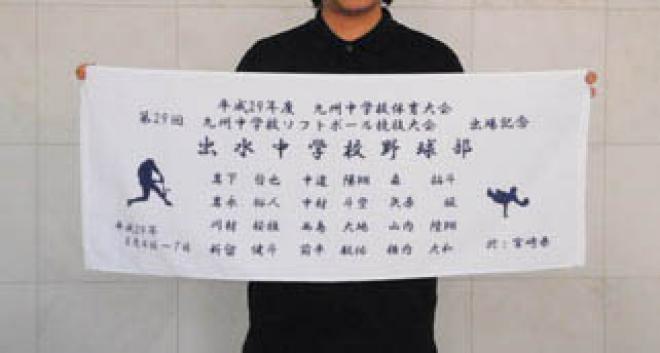 平成29年度 九州中学校体育大会
第29回 九州中学校ソフトボール競技大会 出場記念
出水中学校野球部
宮下 哲也 中道 陽翔 森 拓斗
裕人 中村 斗空
川村 西島 大地 山内 陸翔
新留 健斗 大和
平成29年
8月4日〜7日
於:宮崎県